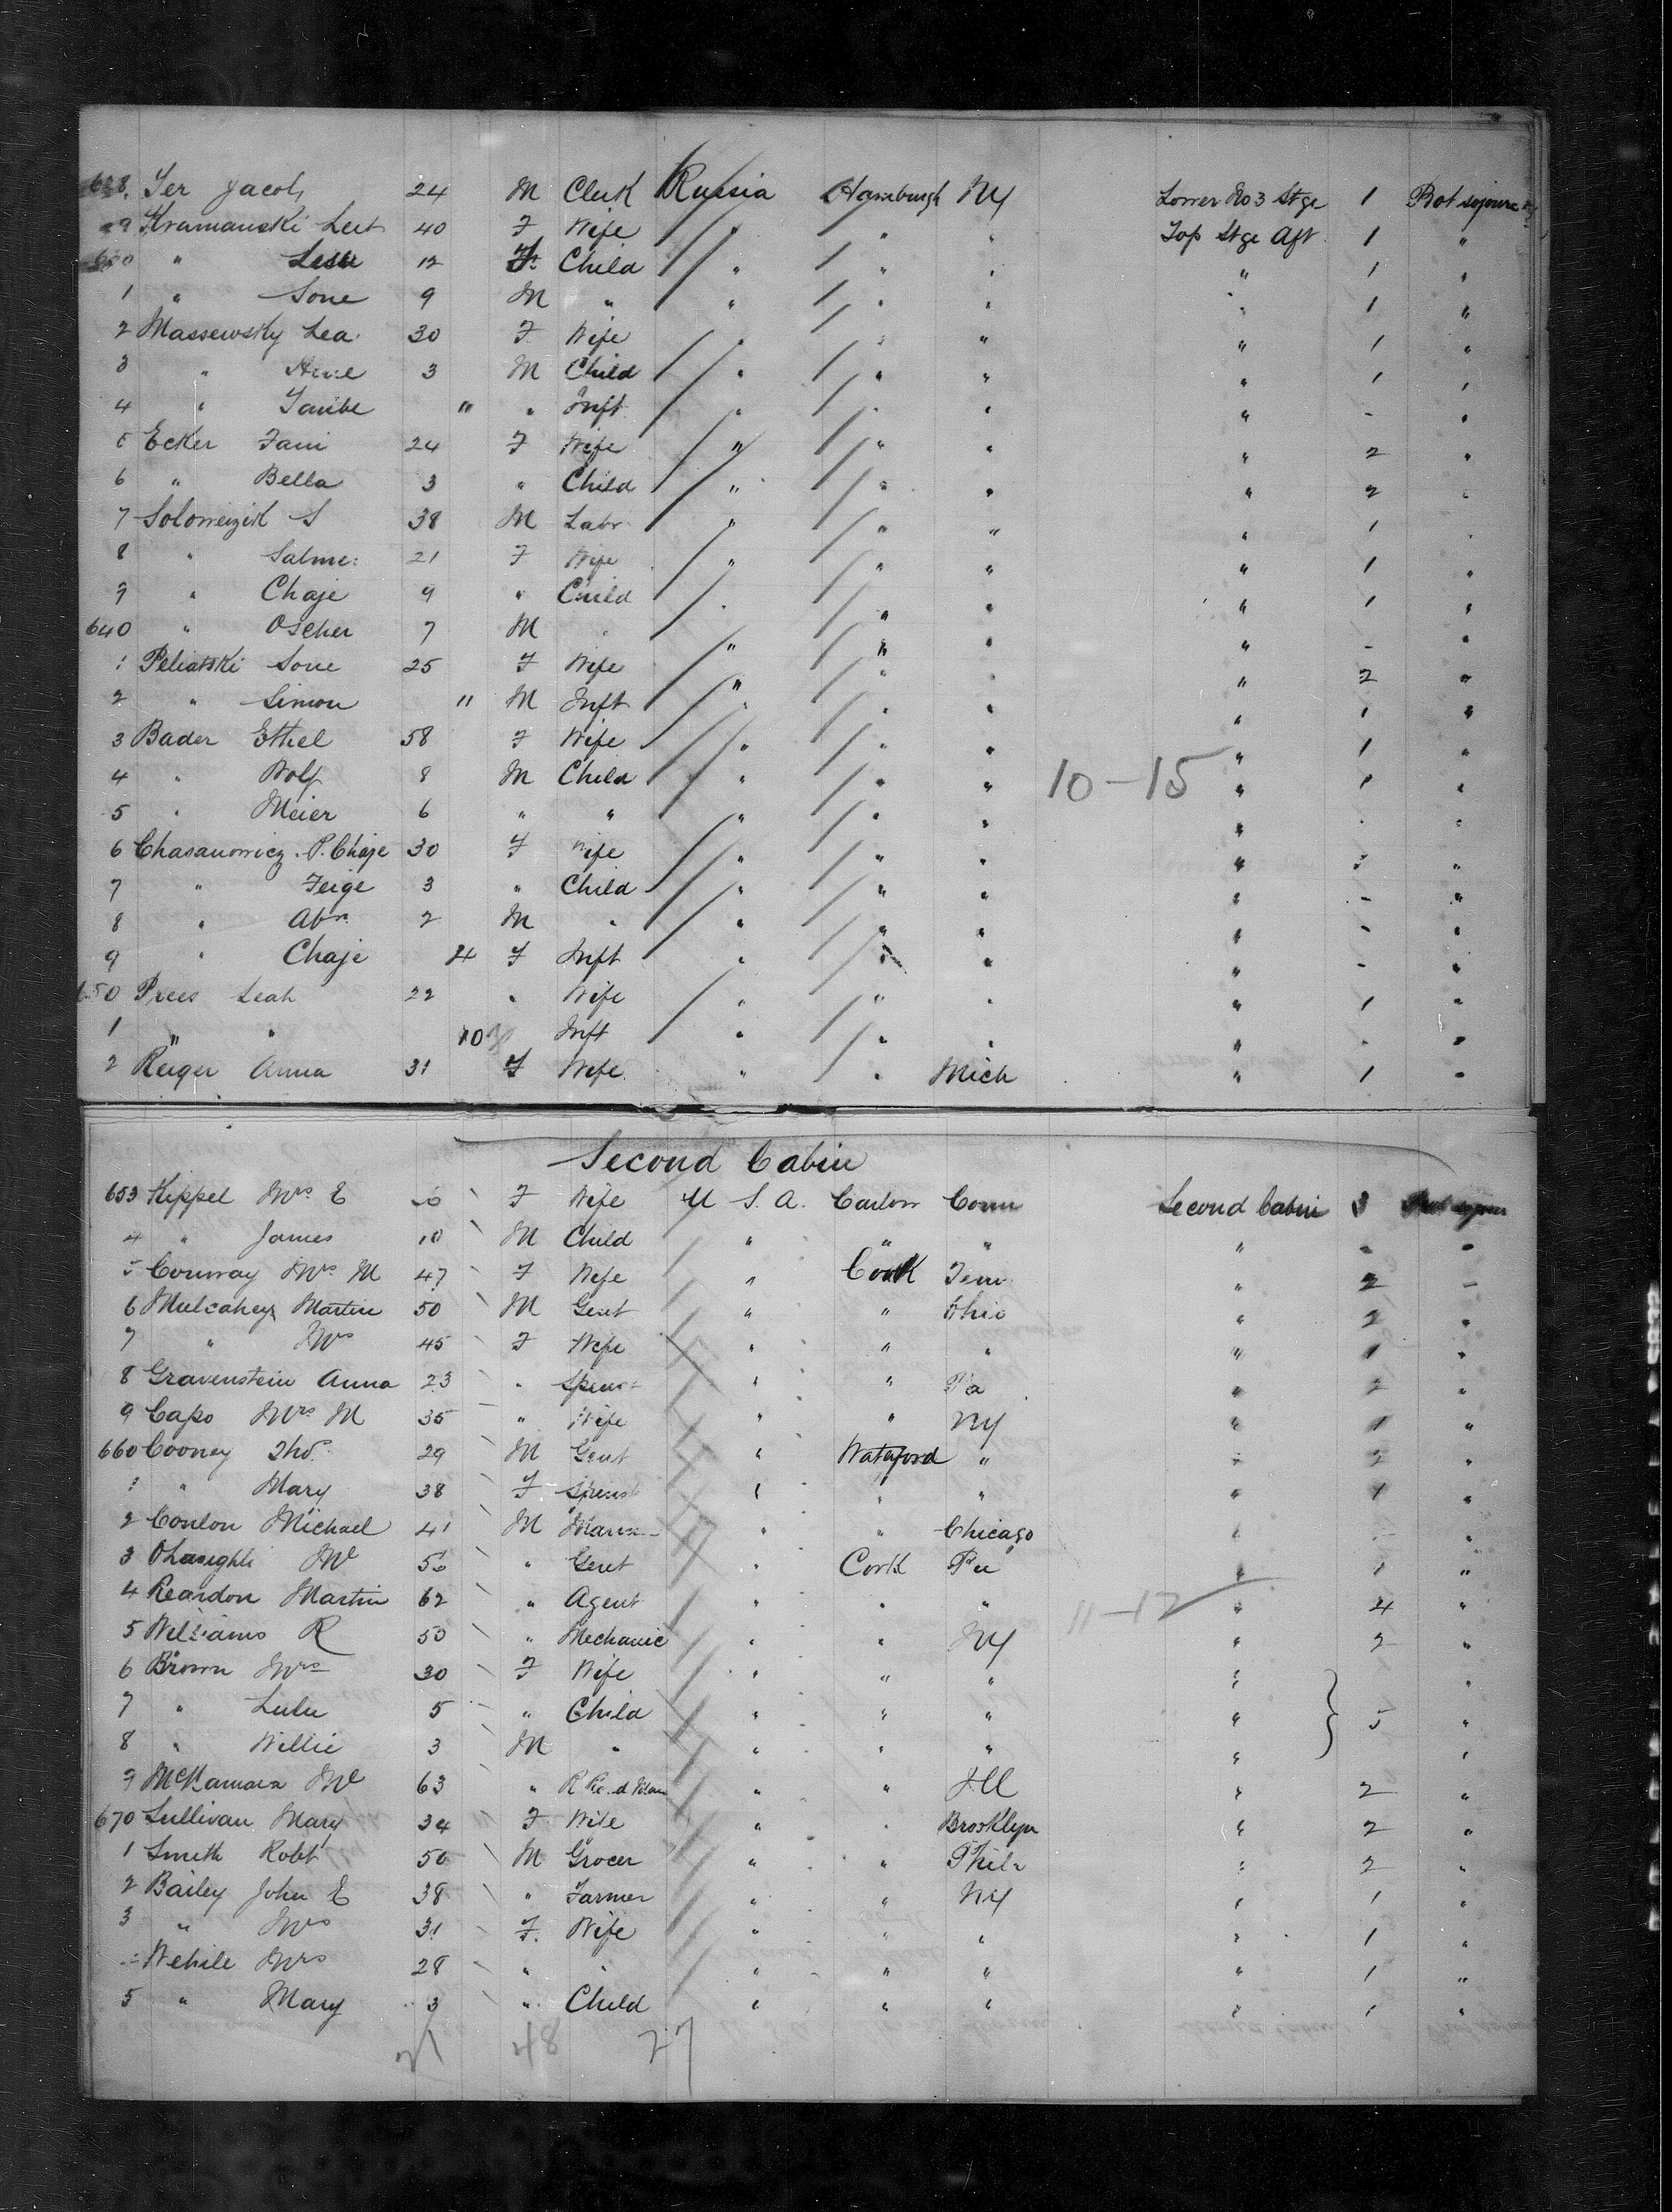 628. Ser Jacob 24 M Clerk Russia Hamburgh NY Lower No 3 Stge 1 Prot sejourn
9 Kramanski 40 F Wife " " " Top Stge Aft 1 "
630 " 12 F Child " " " " 1 "
1 " Sone 9 M " " " " " 1 "
2 Massewsky Lea 30 F Wife " " " " 1 "
3 " 3 M Child " " " " 1 "
4 " Taube " " Inft " " " " - "
5 Ecker Fani 24 F Wife " " " " 2 "
6 " Bella 3 " Child " " " " 2 "
7 Solomeizik S 38 M Labr " " " " 1 "
8 " Salme 21 F Wife " " " " 1 "
9 " Chaje 9 " Child " " " " 1 "
640 " Oscher 7 M " " " " " - "
1 Peliatski Sone 25 F Wife " " " " 2 "
2 " Simon " M Inft " " " " 1 "
3 Bader Ethel 58 F Wife " " " " 1 "
4 " Wolf 8 M Child " " " 10-15 " 1 "
5 " Meier 6 " " " " " " - "
6 Chasanowicz P. Chaje 30 F Wife " " " " "
7 " Feige 3 " Child " " " " - "
8 " Abr. 2 M " " " " " - "
9 " Chaje 4 F Inft " " " " - "
650 Prees Leah 22 " Wife " " " " 1 "
1 " " 10 Inft " " " " - "
2 Reiger Anna 31 F Wife " " Mich " 1 "
Second Cabin
653 Kippel Mrs E F Wife U S. A. Carlow Conn Second Cabin 3
4 " James 10 M Child " " " " - "
5 Conway Mrs M 47 F Wife " Cork Tenn " 2 "
6 Mulcahey Martin 50 M Gent " " Ohio " 2 "
7 " Mrs 45 F Wife " " " " 1 "
8 Gravenstein Anna 23 " Spinst " " Pa " 2 "
9 Capo Mrs M 35 " Wife " " NY " 1 "
660 Cooney Thos. 29 M Gent " Waterford " " 2 "
1 " Mary 38 F Spinst " " " " 1 "
2 Conlon Michael 41 M " " Chicago " - "
3 Mr " Gent " Cork " 1 "
4 Reardon Martin 62 " Agent " " " 11-12 " 4 "
5 Williams R 50 " Mechanic " " NY " 2 "
6 Brown Mrs 30 F Wife " " " " "
7 " Lulu 5 " Child " " " " 5 "
8 " Willie 3 M " " " " " "
9 McNamara Mr 63 " " " Ill " 2 "
670 Sullivan Mary 34 F Wife " " Brooklyn " 2 "
1 Smith Robt 50 M Grocer " " Phila " 2 "
2 Bailey John E 38 " Farmer " " NY " 1 "
3 " Mrs 31 F. Wife " " " " 1 "
Wehile Mrs 28 " " " " " " 1 "
5 " Mary 3 " Child " " " " 1 "
21 48 27